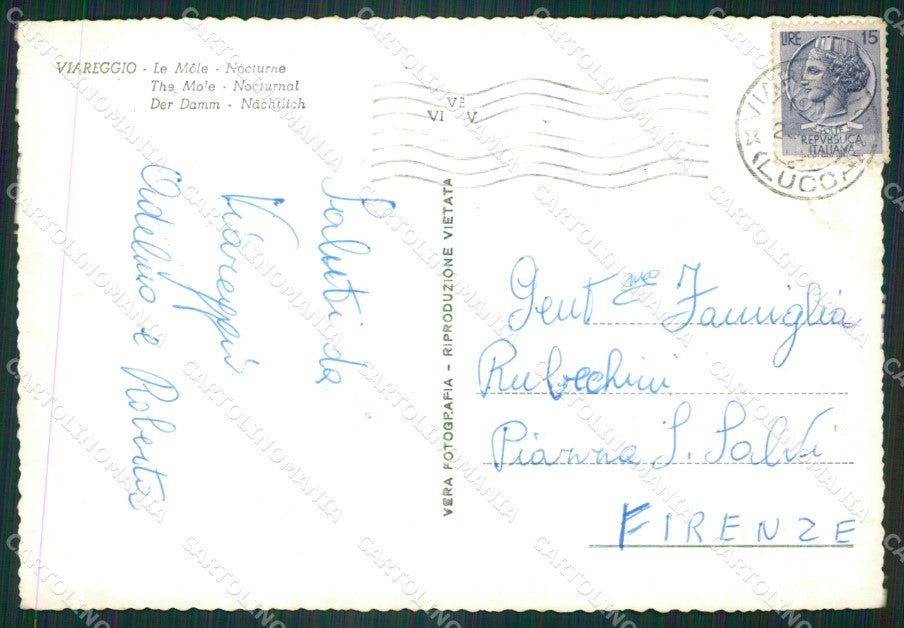 VIAREGGIO - Le Môle - Nocturne
The Mole - Nocturnal
Der Damm - Nächtlich
LIRE 15
POSTE
REPVBBLICA
ITALIANA
(LUCCA)
Saluti da
Viareggio
Adelmo e Roberta
VERA FOTOGRAFIA - RIPRODUZIONE VIETATA
Gent.me Famiglia
Rubechini
Piazza S. Salvi
FIRENZE
CARTOLINOMANIA